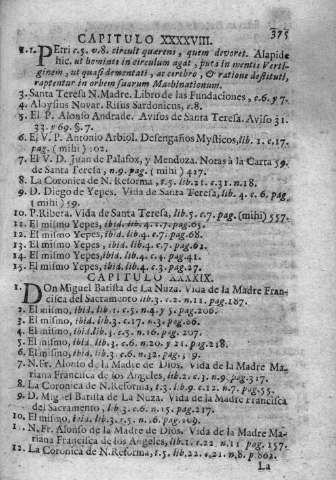 375
CAPITULO XXXXVIII.
1. 1. Petri c.5. v.8. circuit quærens, quem devoret. Alapide
hic. ut homines in circulum agat, puta in mentis Vertiginem,
ut quasi dementati, ac cerebro, & ratione destituti,
raptentur in orbem suarum Machinationum.
3. Santa Teresa N. Madre. Libro de las Fundaciones, c.6. y 7.
4. Aloysius Novar. Risus Sardonicus, c.8.
5. El P. Alonso Andrade. Avisos de Santa Teresa. Aviso 31.
33. y 69. §. 7.
6. El V. P. Antonio Arbiol. Desengaños Mysticos, lib. 1. c.17.
pag. (mihi) 102.
7. El V. D. Juan de Palafox, y Mendoza. Notas à la Carta 59
de Santa Teresa, n.9. pag (mihi) 417.
8. La Coronica de N. Reforma, t.5. lib.21. c.31. n.18.
9. D. Diego de Yepes. Vida de Santa Teresa, lib. 4. c.6. pag
(mihi) 59.
10. P. Ribera. Vida de Santa Teresa, lib.5. c.7. pag. (mihi) 557.
11. El mismo Yepes, ibid. lib. 4. c.7. pag.65.
12. El mismo Yepes, ibid. lib.4. c.7. pag.68.
13. El mismo Yepes, ibid. lib.4. c.7. pag.62.
14. El mismo Yepes, ibid. lib.4. c.2. pag.21.
15. El mismo Yepes, ibid. lib.4. c.3. pag.27.
CAPITULO XXXXIX.
1. DOn Miguel Batista de La Nuza. Vida de la Madre Francisca
del Sacramento lib.3. c.2. n.11. pag.187.
2. El mismo, ibid. lib. c.5. n.4. y 5. pag.206.
3. El mismo, ibid. lib.3. c.17. n.3. pag.06.
4. El mismo, ibid. lib.3. c.5. n.16. pag.207.
5. El mismo, ibid. lib.3. c.6. n.20. y 21. pag.218.
6. El mismo, ibid. lib.3. c.6. n.32. pag. 9.
7. N. Fr. Alonso de la Madre de Dios. Vida de la Madre Mariana
Francisca de los Angeles, lib.2. c.3. n.9. pag.317.
8. La Coronica de N. Reforma, t.3. lib.9. c.12. n.7. pag.55.
9. D. Miguel Batista de La Nuza. Vida de la Madre Francisca
del Sacramento, lib.3. c.6. n.15. pag.217.
10. El mismo, ibid. lib.3. c.5. n.6. pag.209.
11. N. Fr. Alonso de la Madre de Dios. Vida de la Madre Mariana
Francisca de los Angeles, lib.1. c.22. n.11 pag. 157.
12. La Coronica de N. Reforma, t.5. lib.22. c.21. n.8. p.802.
La